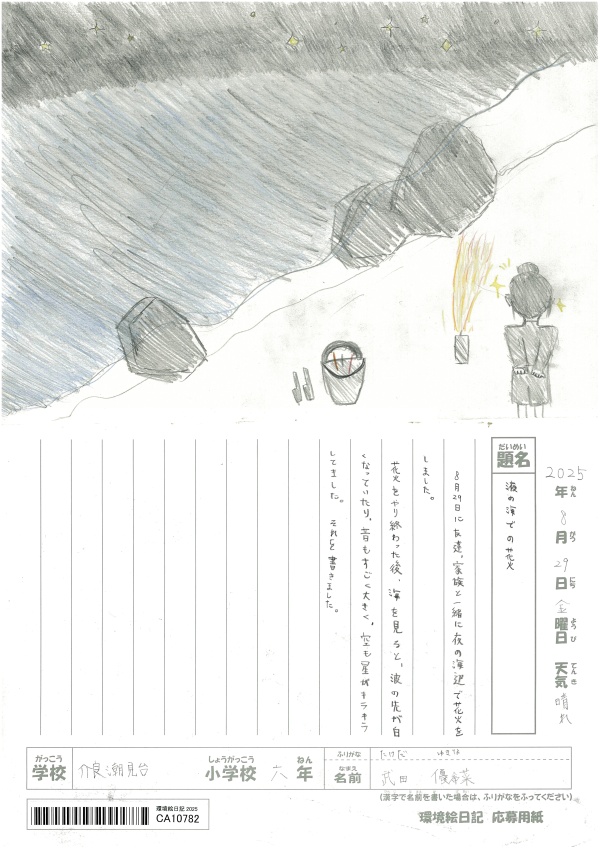 2025年8月29日金曜日 天気 晴れ
ねん がつ にち ようび てんき
だいめい
題名
夜の海での花火
8月29日に友達、家族と一緒に夜の海辺で花火を
しました。
花火をやり終わった後、海を見ると、波の先が白
くなっていたり、音もすごく大きく、空も星がキラキラ
してました。それを書きました。
がっこう しょうがっこう ねん
学校 介良潮見台 小学校 六年
ふりがな たけだ
なまえ
名前 武田 優
菜
(漢字で名前を書いた場合は、ふりがなをふってください)
環境絵日記 応募用紙
環境絵日記 2025
CA10782